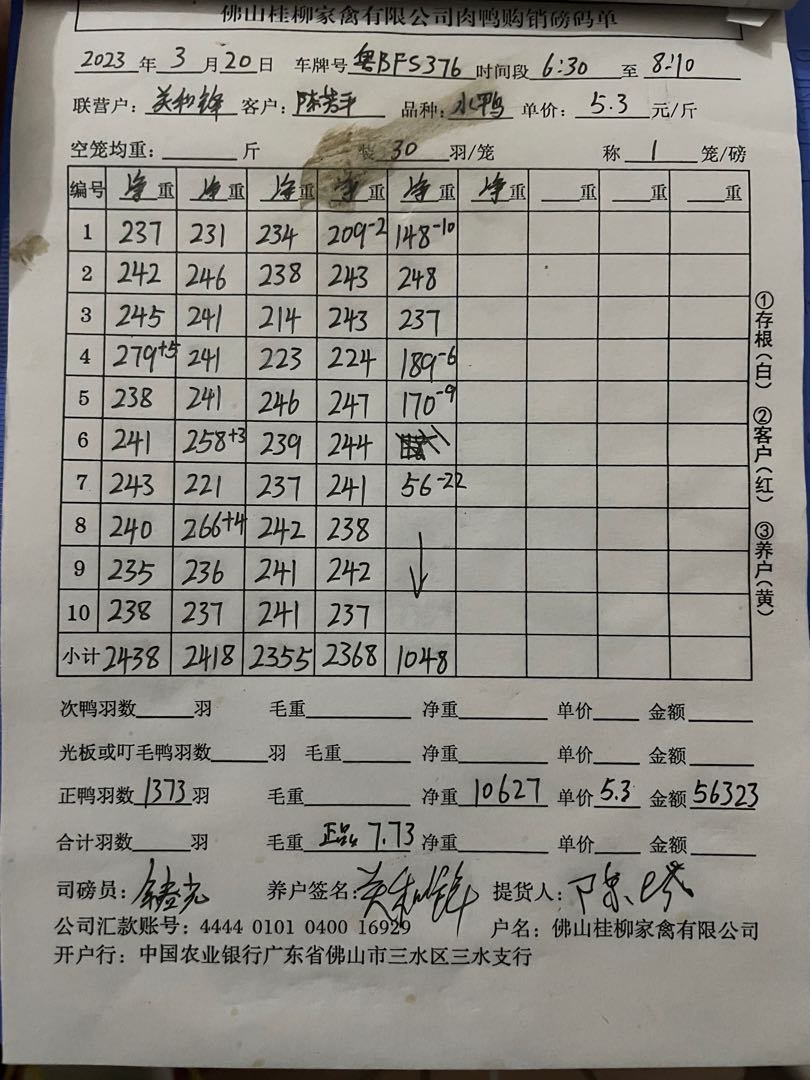 佛山桂柳家禽有限公司肉鸭购销磅码单
2023 年 3 月 20 日 车牌号 粤BFS376 时间段 6:30 至 8:10
联营户: 客户: 陈芳平 品种: 水鸭 单价: 5.3 元/斤
空笼均重: 斤 装 30 羽/笼 称 1 笼/磅
编号 净重 净重 净重 净重 净重 净重 重 重 重
1 237 231 234 209-2 148-10
2 242 246 238 243 248
3 245 241 214 243 237
4 279+5 241 223 224 189-6
5 238 241 246 247 170-9
6 241 258+3 239 244
7 243 221 237 241 56-22
8 240 266+4 242 238
9 235 236 241 242
10 238 237 241 237
小计 2438 2418 2355 2368 1048
①存根(白) ②客户(红) ③养户(黄)
次鸭羽数 羽 毛重 净重 单价 金额
光板或叮毛鸭羽数 羽 毛重 净重 单价 金额
正鸭羽数 1373 羽 毛重 净重 10627 单价 5.3 金额 56323
合计羽数 羽 毛重 正品 7.73 净重 单价 金额
司磅员: 养户签名: 提货人:
公司汇款账号: 4444 0101 0400 16929 户名: 佛山桂柳家禽有限公司
开户行: 中国农业银行广东省佛山市三水区三水支行